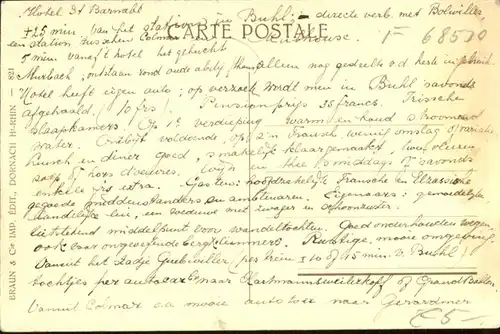 Hotel St Barnabé
± 25 min van het station in Buhl: in directe verb. met Bolwiller,
een station tusschen Colmar
CARTE POSTALE
en Mulhouse. F 68520
5 min vanaf 't hotel het gehucht
Murbach, ontstaan rond oude abdij
Hotel heeft eigen auto; op verzoek wordt men in Buhl 's avonds
afgehaald. 10 frs! Pensionprijs 35 francs. Frissche
slaapkamers. Op 1e verdieping warm en koud stroomend
water. Ontbijt voldoende, op z'n Fransch weinig omslag of variatie
Lunch en diner goed, smakelijk klaargemaakt,
soep of hors d'oeuvres. Wijn en thee 's middags of 's avonds
enkele frs extra. Gasten: hoofdzakelijk Fransche en Elzassische
gegoede middenstanders en ambtenaren. Eigenaars: gemoedelijke
handelijke lui, een weduwe met zwager en schoonzuster.
Uitstekend middelpunt voor wandeltochten. Goed onderhouden wegen
ook voor ongeoefende bergklimmers. Rustige, mooie omgeving
Vanuit het stadje Guebwiller, per trein ± 10 of 15 min. v. Buhl!
tochtjes per autocar naar Hartmannsweilerkopf of Grand Ballon.
Vanuit Colmar o.a. mooie autotour naar Gerardmer
£5-
BRAUN & Cie IMP. ÉDIT., DORNACH Ht-RHIN — 1921